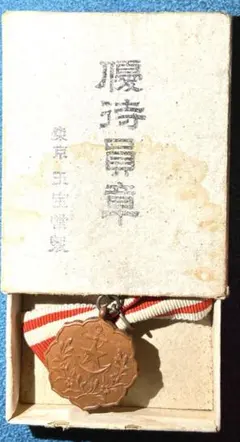 優待員章
東京 玉宝堂製